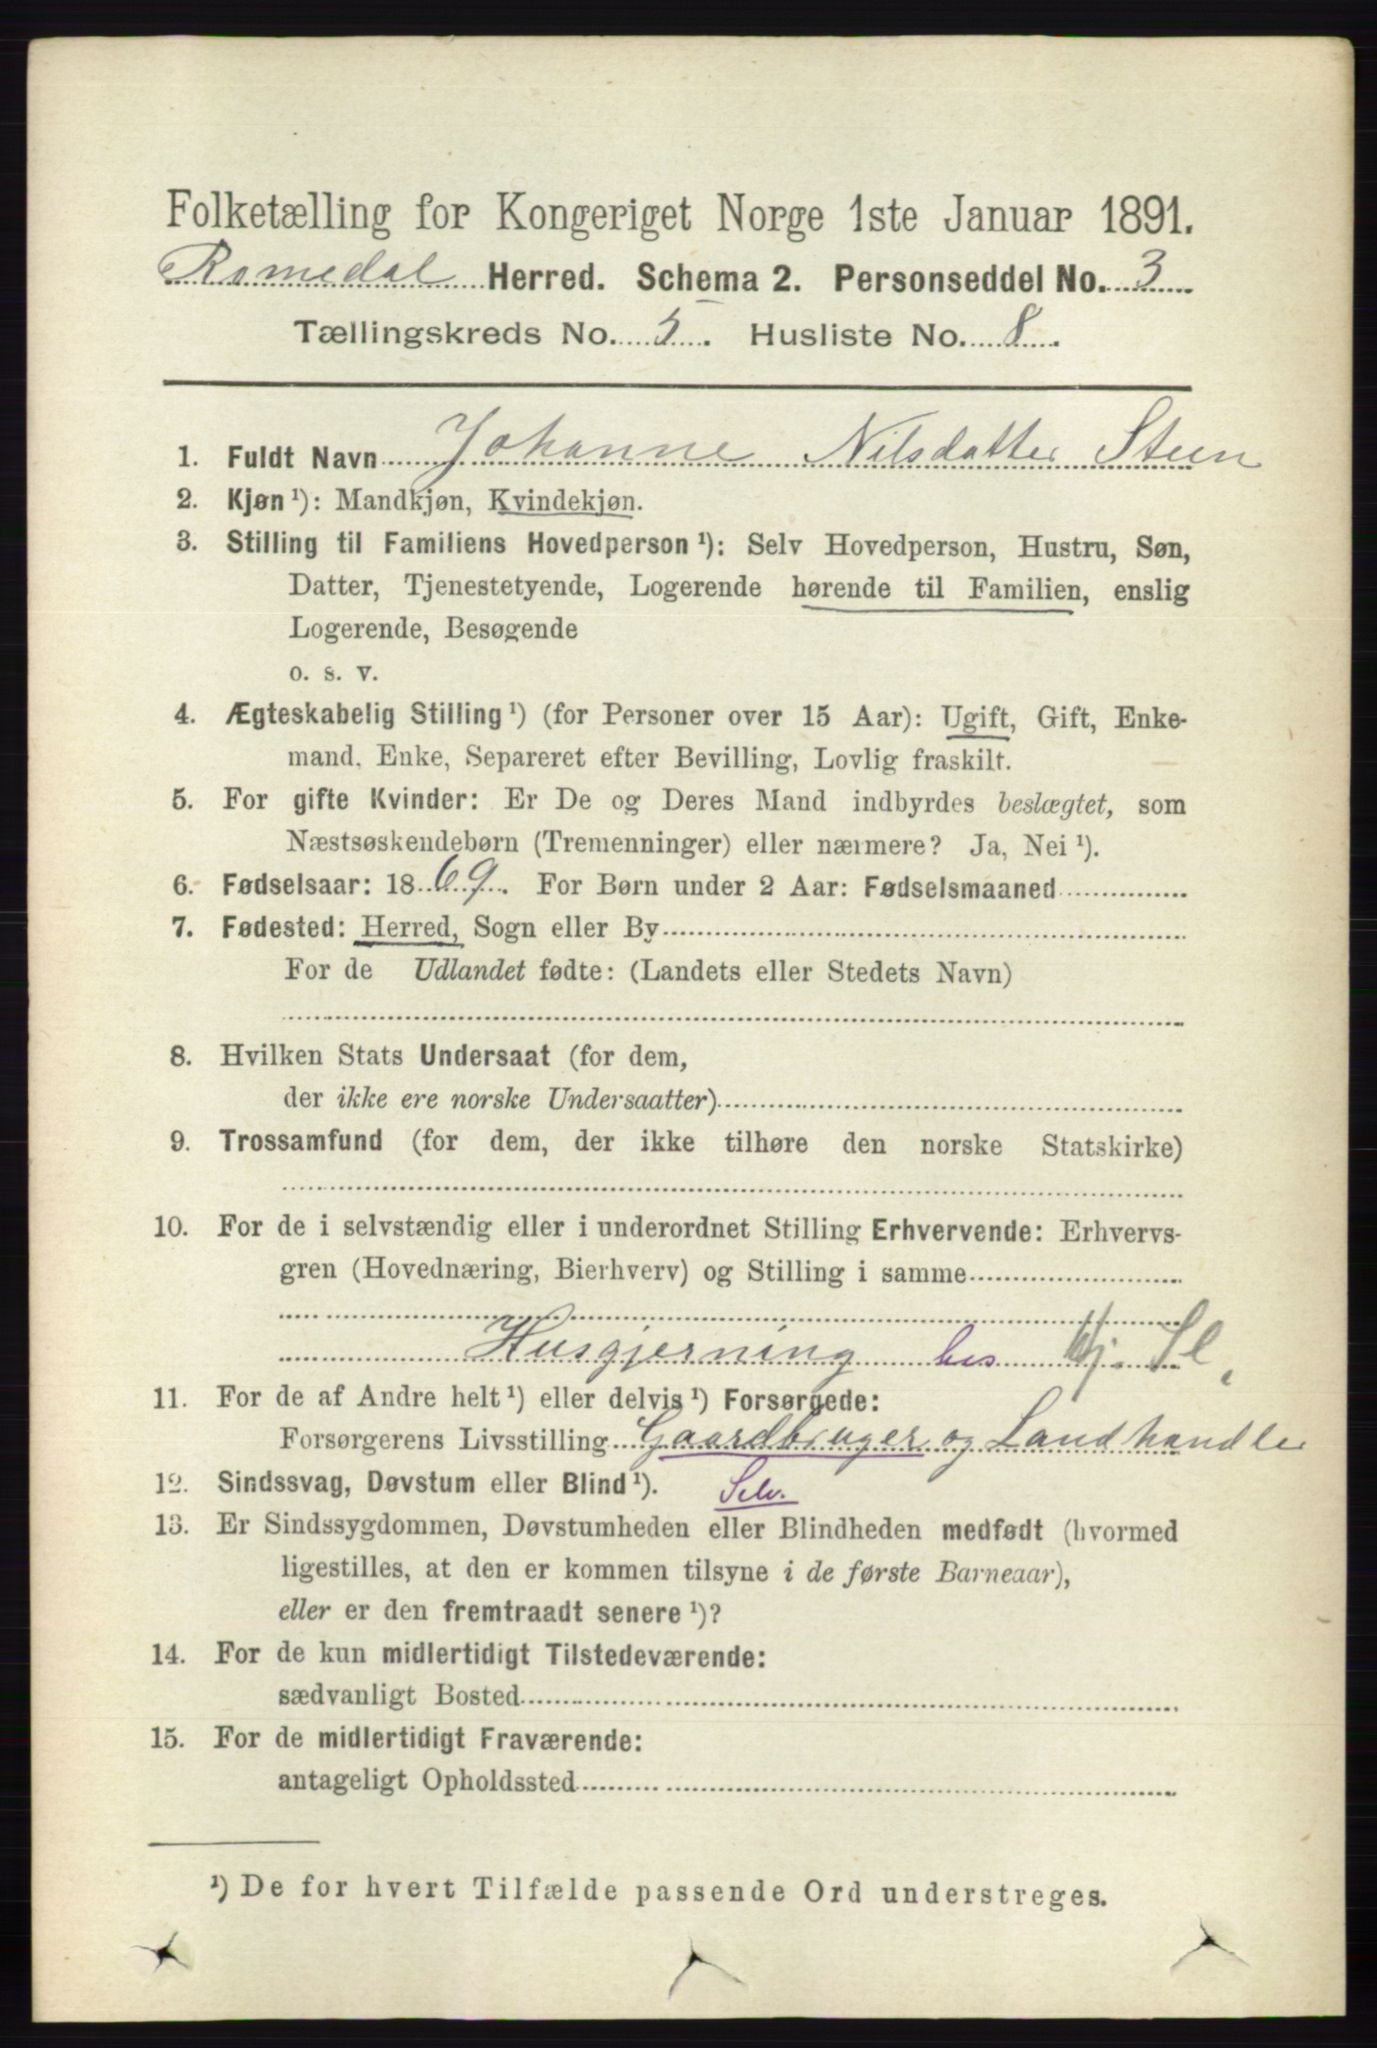 Folketælling for Kongeriget Norge 1ste Januar 1891.
Romedal Herred. Schema 2. Personseddel No. 3
Tællingskreds No. 5. Husliste No. 8.
1. Fuldt Navn Johanne Nilsdatter Steen
2. Kjøn¹): Mandkjøn, Kvindekjøn.
3. Stilling til Familiens Hovedperson¹): Selv Hovedperson, Hustru, Søn,
Datter, Tjenestetyende, Logerende hørende til Familien, enslig
Logerende, Besøgende
o. s. v.
4. Ægteskabelig Stilling¹) (for Personer over 15 Aar): Ugift, Gift, Enke-
mand, Enke, Separeret efter Bevilling, Lovlig fraskilt.
5. For gifte Kvinder: Er De og Deres Mand indbyrdes beslægtet, som
Næstsøskendebørn (Tremenninger) eller nærmere? Ja, Nei¹).
6. Fødselsaar: 1869. For Børn under 2 Aar: Fødselsmaaned
7. Fødested: Herred, Sogn eller By
For de Udlandet fødte: (Landets eller Stedets Navn)
8. Hvilken Stats Undersaat (for dem,
der ikke ere norske Undersaatter)
9. Trossamfund (for dem, der ikke tilhøre den norske Statskirke)
10. For de i selvstændig eller i underordnet Stilling Erhvervende: Erhvervs-
gren (Hovednæring, Bierhverv) og Stilling i samme
Husgjerning bes Hj. Sl.
11. For de af Andre helt¹) eller delvis¹) Forsørgede:
Forsørgerens Livsstilling Gaardbruger og Landhandler
12. Sindssvag, Døvstum eller Blind¹). Selv.
13. Er Sindssygdommen, Døvstumheden eller Blindheden medfødt (hvormed
ligestilles, at den er kommen tilsyne i de første Barneaar),
eller er den fremtraadt senere¹)?
14. For de kun midlertidigt Tilstedeværende:
sædvanligt Bosted
15. For de midlertidigt Fraværende:
antageligt Opholdssted
¹) De for hvert Tilfælde passende Ord understreges.